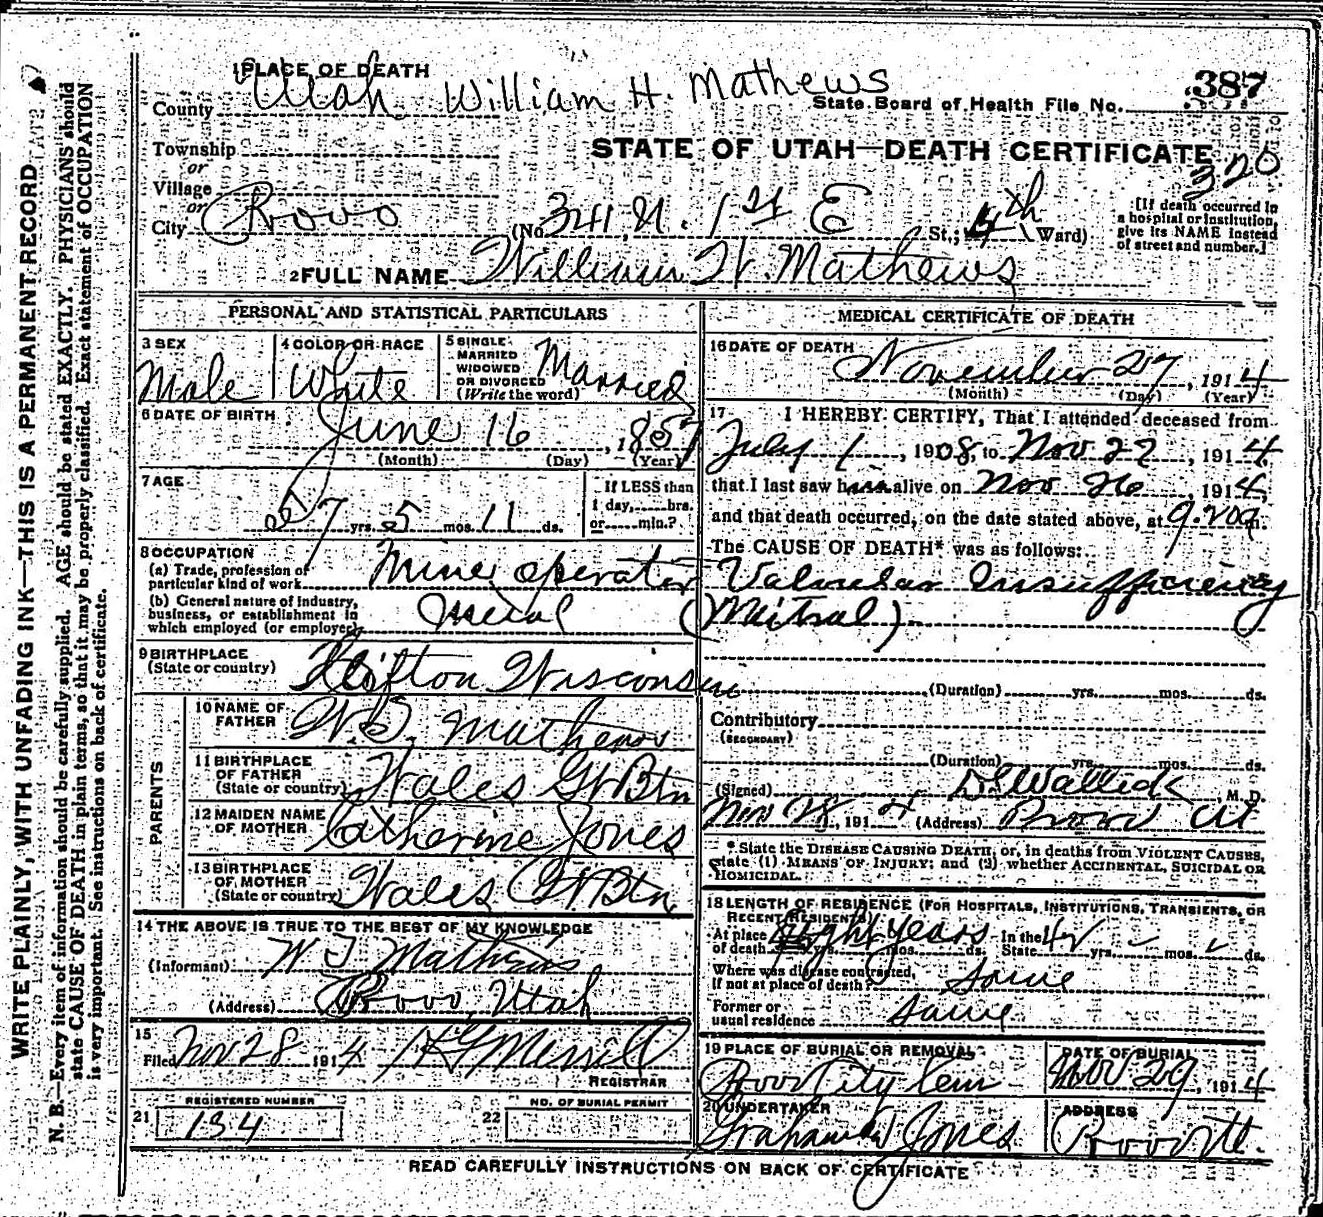 1 PLACE OF DEATH
County Utah William H. Mathews
State Board of Health File No. 387
Township
or
STATE OF UTAH—DEATH CERTIFICATE
320
Village
or
City Provo (No. 341 N. 1st E St.; 4th Ward)
[If death occurred in
a hospital or institution,
give its NAME instead
of street and number.]
2 FULL NAME William H. Mathews
PERSONAL AND STATISTICAL PARTICULARS
3 SEX
Male
4 COLOR OR RACE
White
5 SINGLE
MARRIED
WIDOWED
OR DIVORCED
(Write the word)
Married
6 DATE OF BIRTH
June 16, 1857
(Month) (Day) (Year)
7 AGE
57 yrs. 5 mos. 11 ds.
If LESS than
1 day, hrs.
or min.?
8 OCCUPATION
(a) Trade, profession or
particular kind of work Mine operator
(b) General nature of industry,
business, or establishment in
which employed (or employer) Metal
9 BIRTHPLACE
(State or country) Clifton Wisconsin
PARENTS
10 NAME OF
FATHER
Mathews
11 BIRTHPLACE
OF FATHER
(State or country) Wales Gt Btn
12 MAIDEN NAME
OF MOTHER Catherine Jones
13 BIRTHPLACE
OF MOTHER
(State or country) Wales Gt Btn
14 THE ABOVE IS TRUE TO THE BEST OF MY KNOWLEDGE
(Informant) W T Mathews
(Address) Provo, Utah
15
Filed Nov 28 1914 Merrill
REGISTRAR
21
REGISTERED NUMBER
134
22
NO. OF BURIAL PERMIT
MEDICAL CERTIFICATE OF DEATH
16 DATE OF DEATH
November 27, 1914
(Month) (Day) (Year)
17 I HEREBY CERTIFY, That I attended deceased from
July 1, 1908, to Nov 27, 1914
that I last saw him alive on Nov 26, 1914,
and that death occurred, on the date stated above, at 9.20 a m.
The CAUSE OF DEATH* was as follows:
Valvular Insufficiency
(Mitral)
(Duration) yrs. mos. ds.
Contributory
(SECONDARY)
(Duration) yrs. mos. ds.
(Signed) Wallick M. D.
Nov, 1914 (Address) Provo Ut
* State the DISEASE CAUSING DEATH; or, in deaths from VIOLENT CAUSES,
state (1) MEANS OF INJURY; and (2) whether ACCIDENTAL, SUICIDAL OR
HOMICIDAL.
18 LENGTH OF RESIDENCE (FOR HOSPITALS, INSTITUTIONS, TRANSIENTS, OR
RECENT RESIDENTS)
At place
of death Eight years mos. ds. In the
State 42 yrs. - mos. - ds.
Where was disease contracted,
if not at place of death? Same
Former or
usual residence Same
19 PLACE OF BURIAL OR REMOVAL
Provo City Cem
DATE OF BURIAL
Nov 29, 1914
20 UNDERTAKER
Graham & Jones
ADDRESS
Provo Ut.
READ CAREFULLY INSTRUCTIONS ON BACK OF CERTIFICATE
WRITE PLAINLY, WITH UNFADING INK—THIS IS A PERMANENT RECORD
N. B.—Every item of information should be carefully supplied. AGE should be stated EXACTLY. PHYSICIANS should
state CAUSE OF DEATH in plain terms, so that it may be properly classified. Exact statement of OCCUPATION
is very important. See instructions on back of certificate.